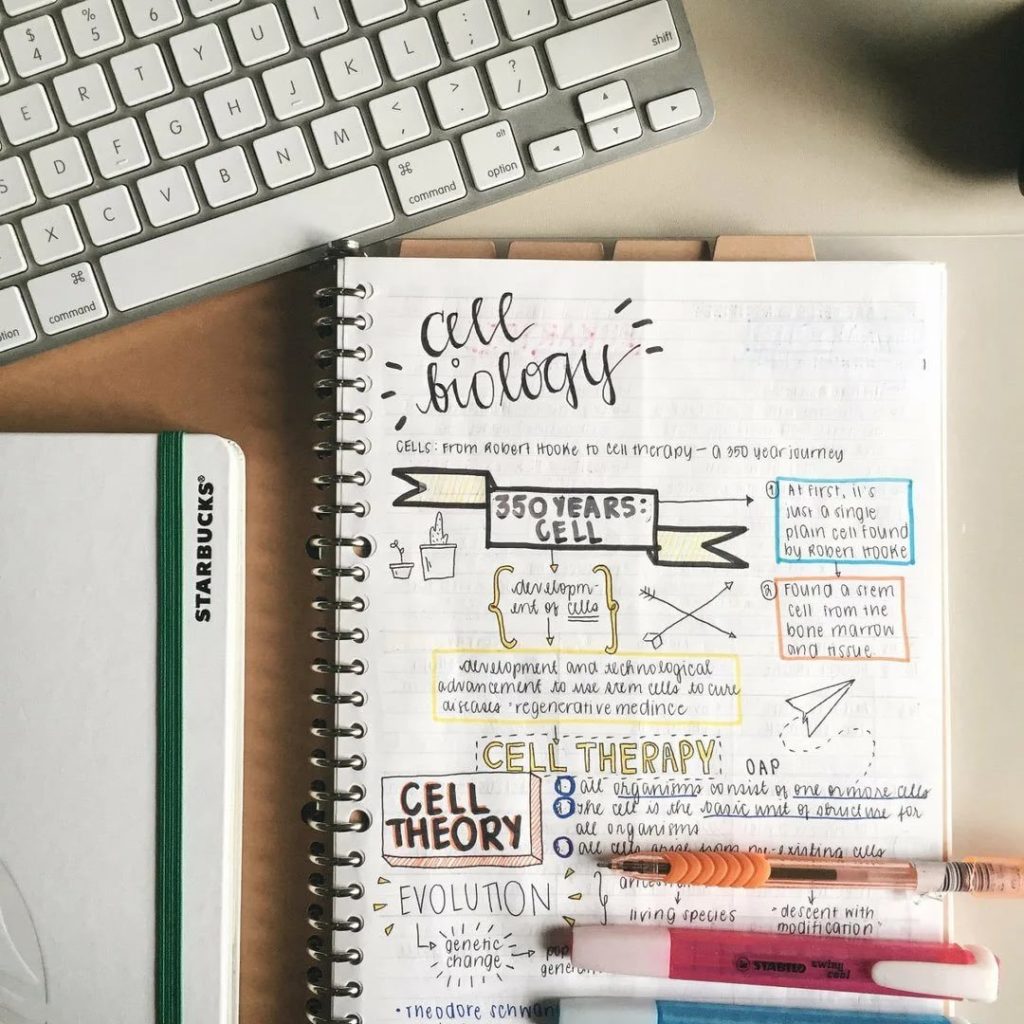 $ 4
% 5
Y
U
I
{ [
shift
E
R
T
H
J
K
L
: ;
? /
D
F
G
N
M
< ,
> .
alt
option
S
X
C
V
B
⌘
command
⌘
command
option
STARBUCKS®
cell
biology
1
CELLS: From Robert Hooke to cell therapy – a 350 year journey
350 YEARS:
CELL
① At first, it's
just a single
plain cell found
by Robert Hooke
② Found a stem
cell from the
bone marrow
and tissue.
developm-
ent of cells
development and technological
advancement to use stem cells to cure
diseases · regenerative medince
CELL THERAPY
OAP
CELL
THEORY
all organisms consist of one or more cells
the cell is the basic unit of structure for
all organisms
all cells arise from pre-existing cells
EVOLUTION
living species
"descent with
modification"
genetic
change
STABILO swing cool
· Theodore Schwan